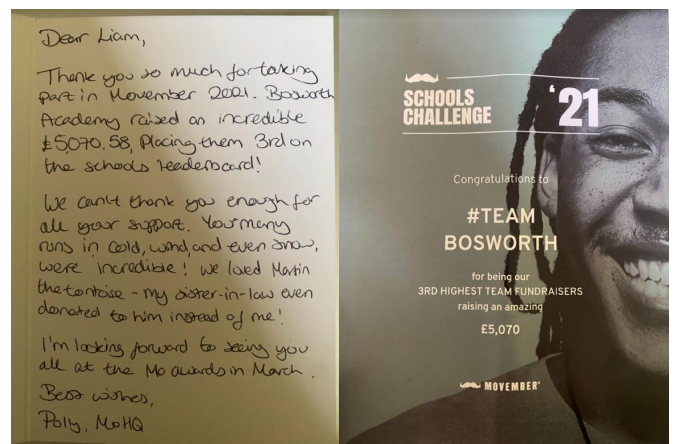 Dear Liam,
Thank you so much for taking
part in Movember 2021. Bosworth
Academy raised an incredible
£5070.58, Placing them 3rd on
the schools leaderboard!
We can't thank you enough for
all your support. Your many
runs in cold, wind, and even snow,
were incredible! We loved Martin
the tortoise - my sister-in-law even
donated to him instead of me!
I'm looking forward to seeing you
all at the Mo awards in March.
Best wishes,
Polly, MoHQ
SCHOOLS
CHALLENGE
'21
Congratulations to
#TEAM
BOSWORTH
for being our
3RD HIGHEST TEAM FUNDRAISERS
raising an amazing
£5,070
MOVEMBER®